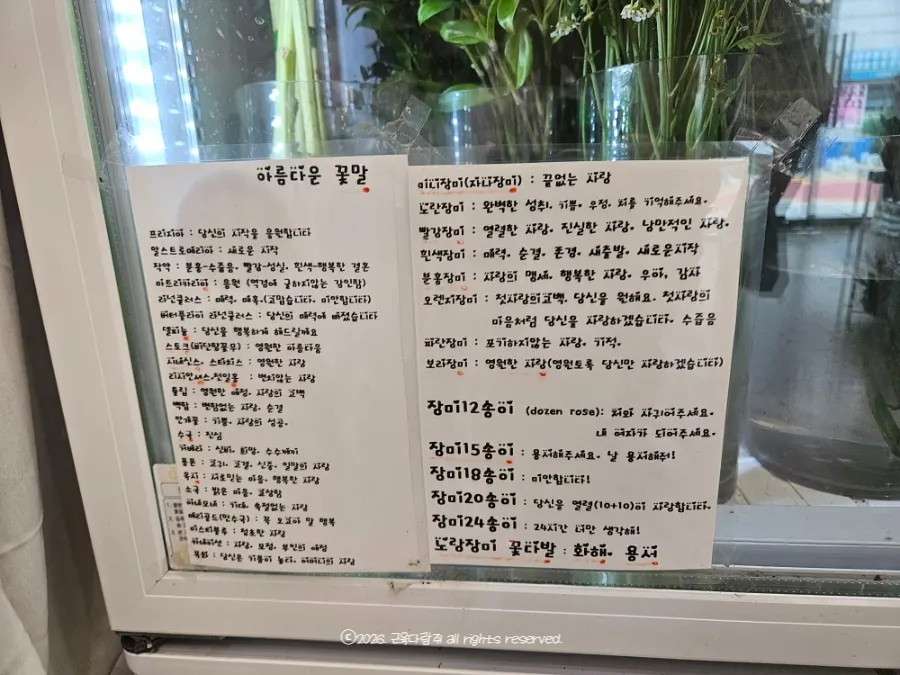 아름다운 꽃말
프리지아 : 당신의 시작을 응원합니다
알스트로메리아 : 새로운 시작
작약 : 분홍-수줍음, 빨강-성실, 흰색-행복한 결혼
아트리카리아 : 응원 (역경에 굴하지않는 강인함)
라넌큘러스 : 매력, 매혹,(고맙습니다, 미안합니다)
버터플라이 라넌큘러스 : 당신의 매력에 빠졌습니다
델피늄 : 당신을 행복하게 해드릴게요
스토크(비단향꽃무) : 영원한 아름다움
시네신스, 스타치스 : 영원한 사랑
리시안셔스,천일홍 : 변치않는 사랑
튤립 : 영원한 애정, 사랑의 고백
백합 : 변함없는 사랑, 순결
안개꽃 : 기쁨, 사랑의 성공,
수국 : 진심
거베라 : 신비, 희망, 수수께끼
폼폰 : 고귀, 고결, 신중, 일말의 사랑
옥시 : 서로믿는 마음, 행복한 사랑
소국 : 밝은 마음, 고상함
아네모네 : 기대, 속절없는 사랑
메리골드(만수국) : 꼭 오고야 말 행복
미스티블루 : 청초한 사랑
카네이션 : 사랑, 모정, 부인의 애정
목화 : 당신은 기품이 높다, 어머니의 사랑
미니장미(자나장미) : 끝없는 사랑
노란장미 : 완벽한 성취, 기쁨, 우정, 저를 기억해주세요.
빨강장미 : 열렬한 사랑, 진실한 사랑, 낭만적인 사랑,
흰색장미 : 매력, 순결, 존경, 새출발, 새로운시작
분홍장미 : 사랑의 맹세, 행복한 사랑, 우아, 감사
오렌지장미 : 첫사랑의고백, 당신을 원해요, 첫사랑의
마음처럼 당신을 사랑하겠습니다, 수줍음
파란장미 : 포기하지않는 사랑, 기적,
보라장미 : 영원한 사랑(영원토록 당신만 사랑하겠습니다)
장미12송이 (dozen rose): 저와 사귀어주세요.
내 여자가 되어주세요.
장미15송이 : 용서해주세요. 날 용서해줘!
장미18송이 : 미안합니다!
장미20송이 : 당신을 열렬(10+10)이 사랑합니다.
장미24송이 : 24시간 너만 생각해!
노랑장미 꽃다발 : 화해, 용서
ⓒ2026. 근육다람쥐 all rights reserved.